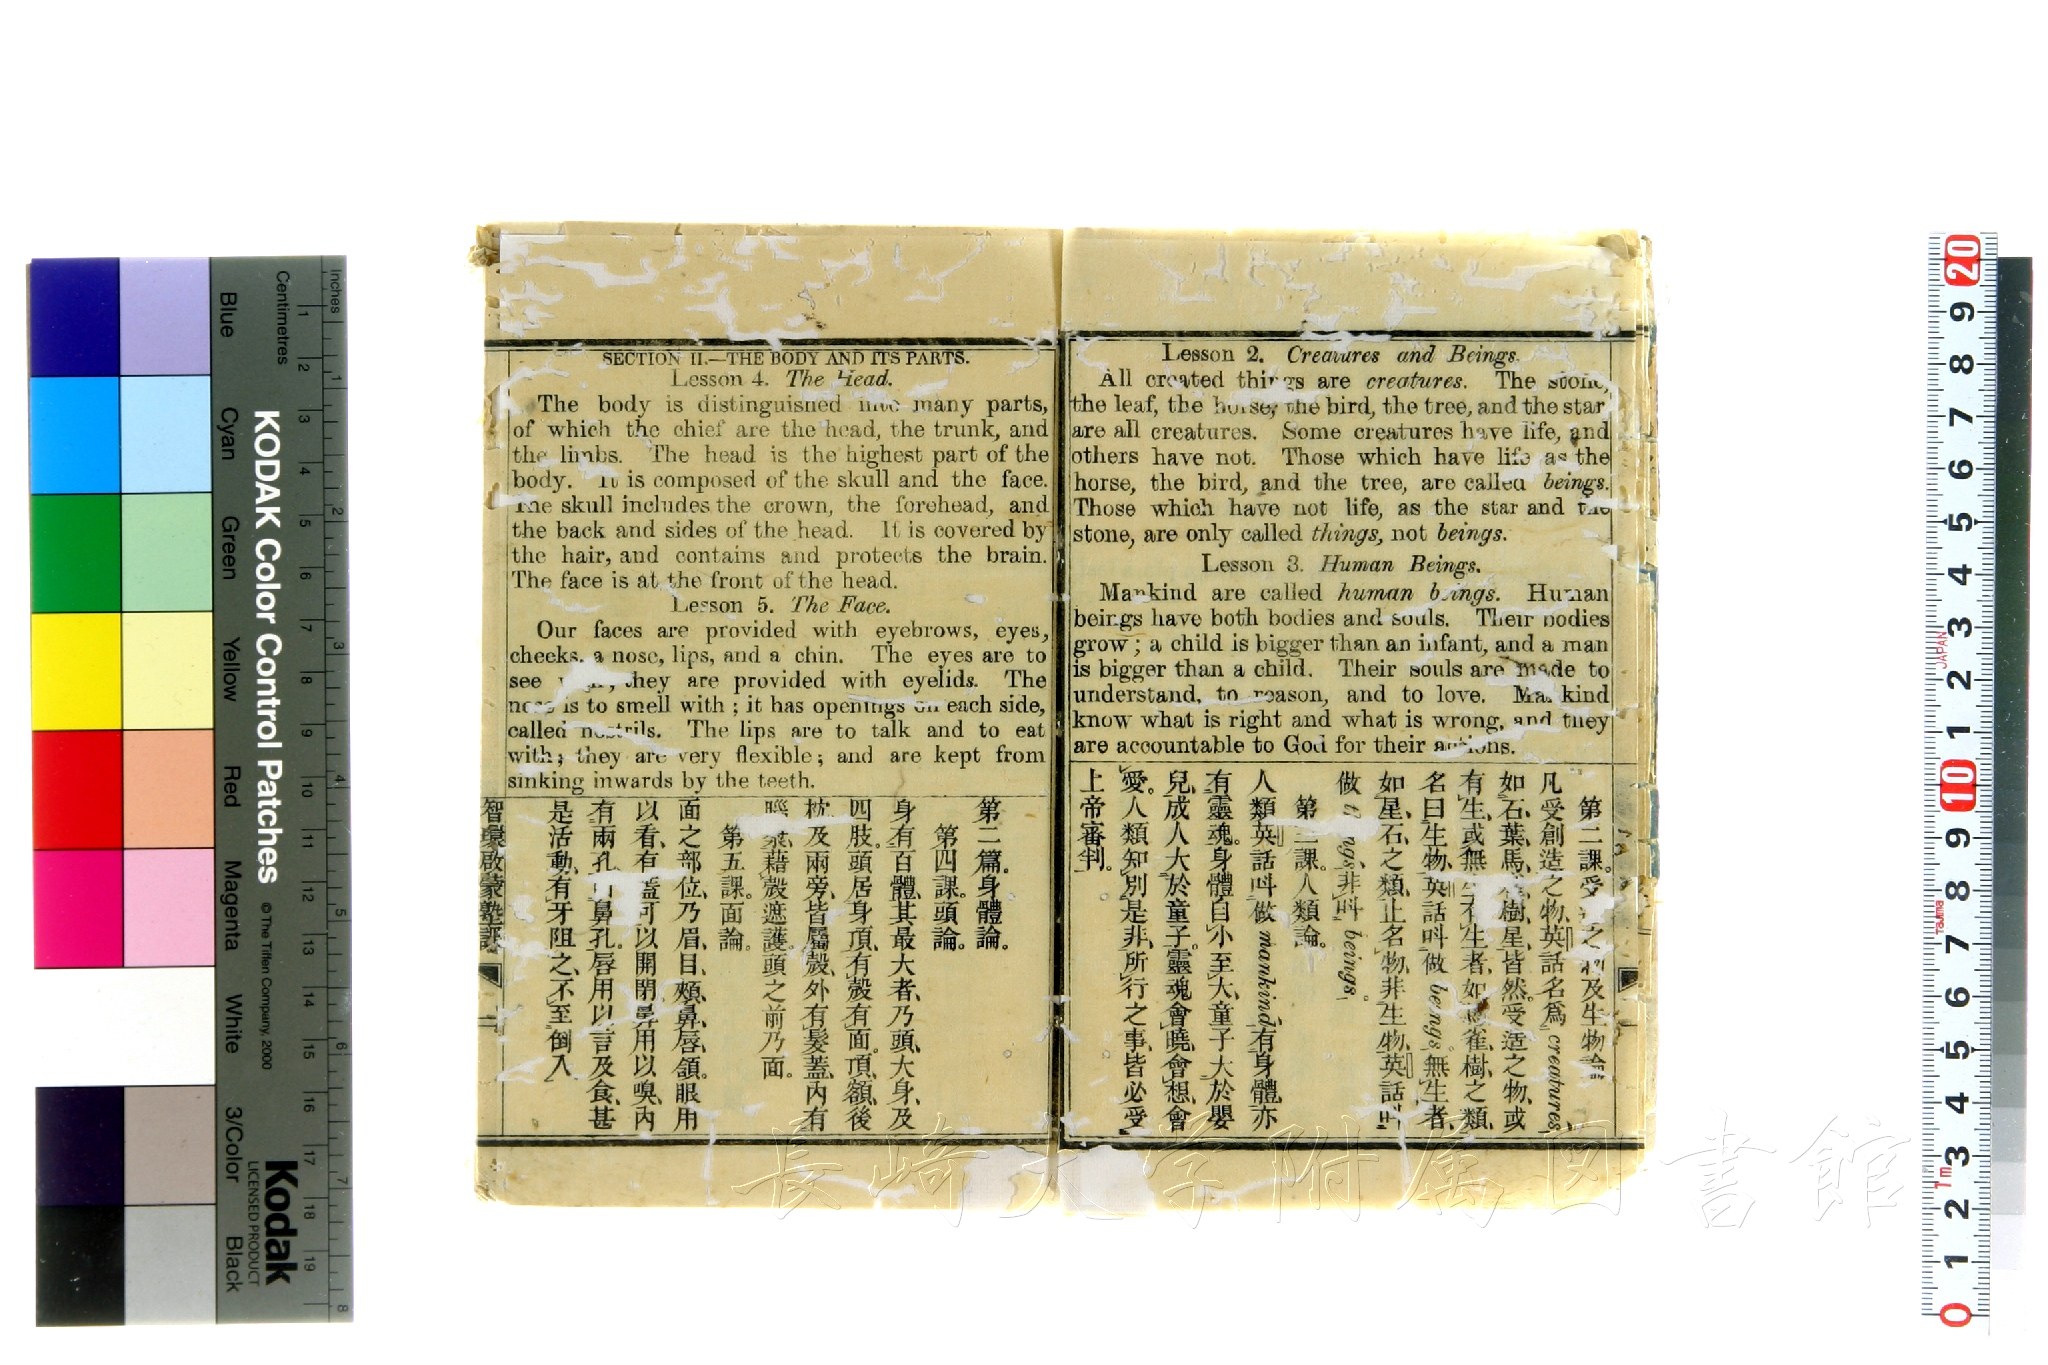 Lesson 2. Creatures and Beings.
All created things are creatures. The stone,
the leaf, the horse, the bird, the tree, and the star
are all creatures. Some creatures have life, and
others have not. Those which have life as the
horse, the bird, and the tree, are called beings.
Those which have not life, as the star and the
stone, are only called things, not beings.
Lesson 3. Human Beings.
Mankind are called human beings. Human
beings have both bodies and souls. Their bodies
grow; a child is bigger than an infant, and a man
is bigger than a child. Their souls are made to
understand, to reason, and to love. Mankind
know what is right and what is wrong, and they
are accountable to God for their actions.
第二課。受之及生物論
凡受創造之物、英話名為 creatures,
如石、葉、馬、樹、星、皆然。受造之物、或
有生、或無生、有生者、如雀、樹之類、
名曰生物、英話呌做 beings。無生者、
如星、石之類、止名物、非生物、英話呌
做 things 非呌 beings.
第三課。人類論。
人類英話呌做 mankind 有身體、亦
有靈魂。身體自小至大、童子大於嬰
兒、成人大於童子。靈魂會曉、會想、會
愛。人類知別是非、所行之事、皆必受
上帝審判。
SECTION II.—THE BODY AND ITS PARTS.
Lesson 4. The Head.
The body is distinguished into many parts,
of which the chief are the head, the trunk, and
the limbs. The head is the highest part of the
body. It is composed of the skull and the face.
The skull includes the crown, the forehead, and
the back and sides of the head. It is covered by
the hair, and contains and protects the brain.
The face is at the front of the head.
Lesson 5. The Face.
Our faces are provided with eyebrows, eyes,
cheeks, a nose, lips, and a chin. The eyes are to
see with; they are provided with eyelids. The
nose is to smell with; it has openings on each side,
called nostrils. The lips are to talk and to eat
with; they are very flexible; and are kept from
sinking inwards by the teeth.
第二篇。身體論。
第四課。頭論。
身有百體、其最大者、乃頭、大身、及
四肢。頭居身頂、有殼有面。頂、額、後
枕、及兩旁、皆屬殼、外有髮蓋、內有
腦藉殼遮護。頭之前乃面。
第五課。面論。
面之部位、乃眉、目、頰、鼻、唇、頷。眼用
以看、有蓋可以開閉。鼻用以嗅、內
有兩孔、鼻孔。唇用以言及食、甚
是活動、有牙阻之、不至倒入
智環啟蒙塾課
Inches
Centimetres
Blue
Cyan
Green
Yellow
Red
Magenta
White
3/Color
Black
KODAK Color Control Patches
© The Tiffen Company, 2000
Kodak
LICENSED PRODUCT
1 2 3 4 5 6 7 8
1 2 3 4 5 6 7 8 9 10 11 12 13 14 15 16 17 18 19
20 9 8 7 6 5 4 3 2 1 10 9 8 7 6 5 4 3 2 1 0
JAPAN
1m
長崎大学附属図書館